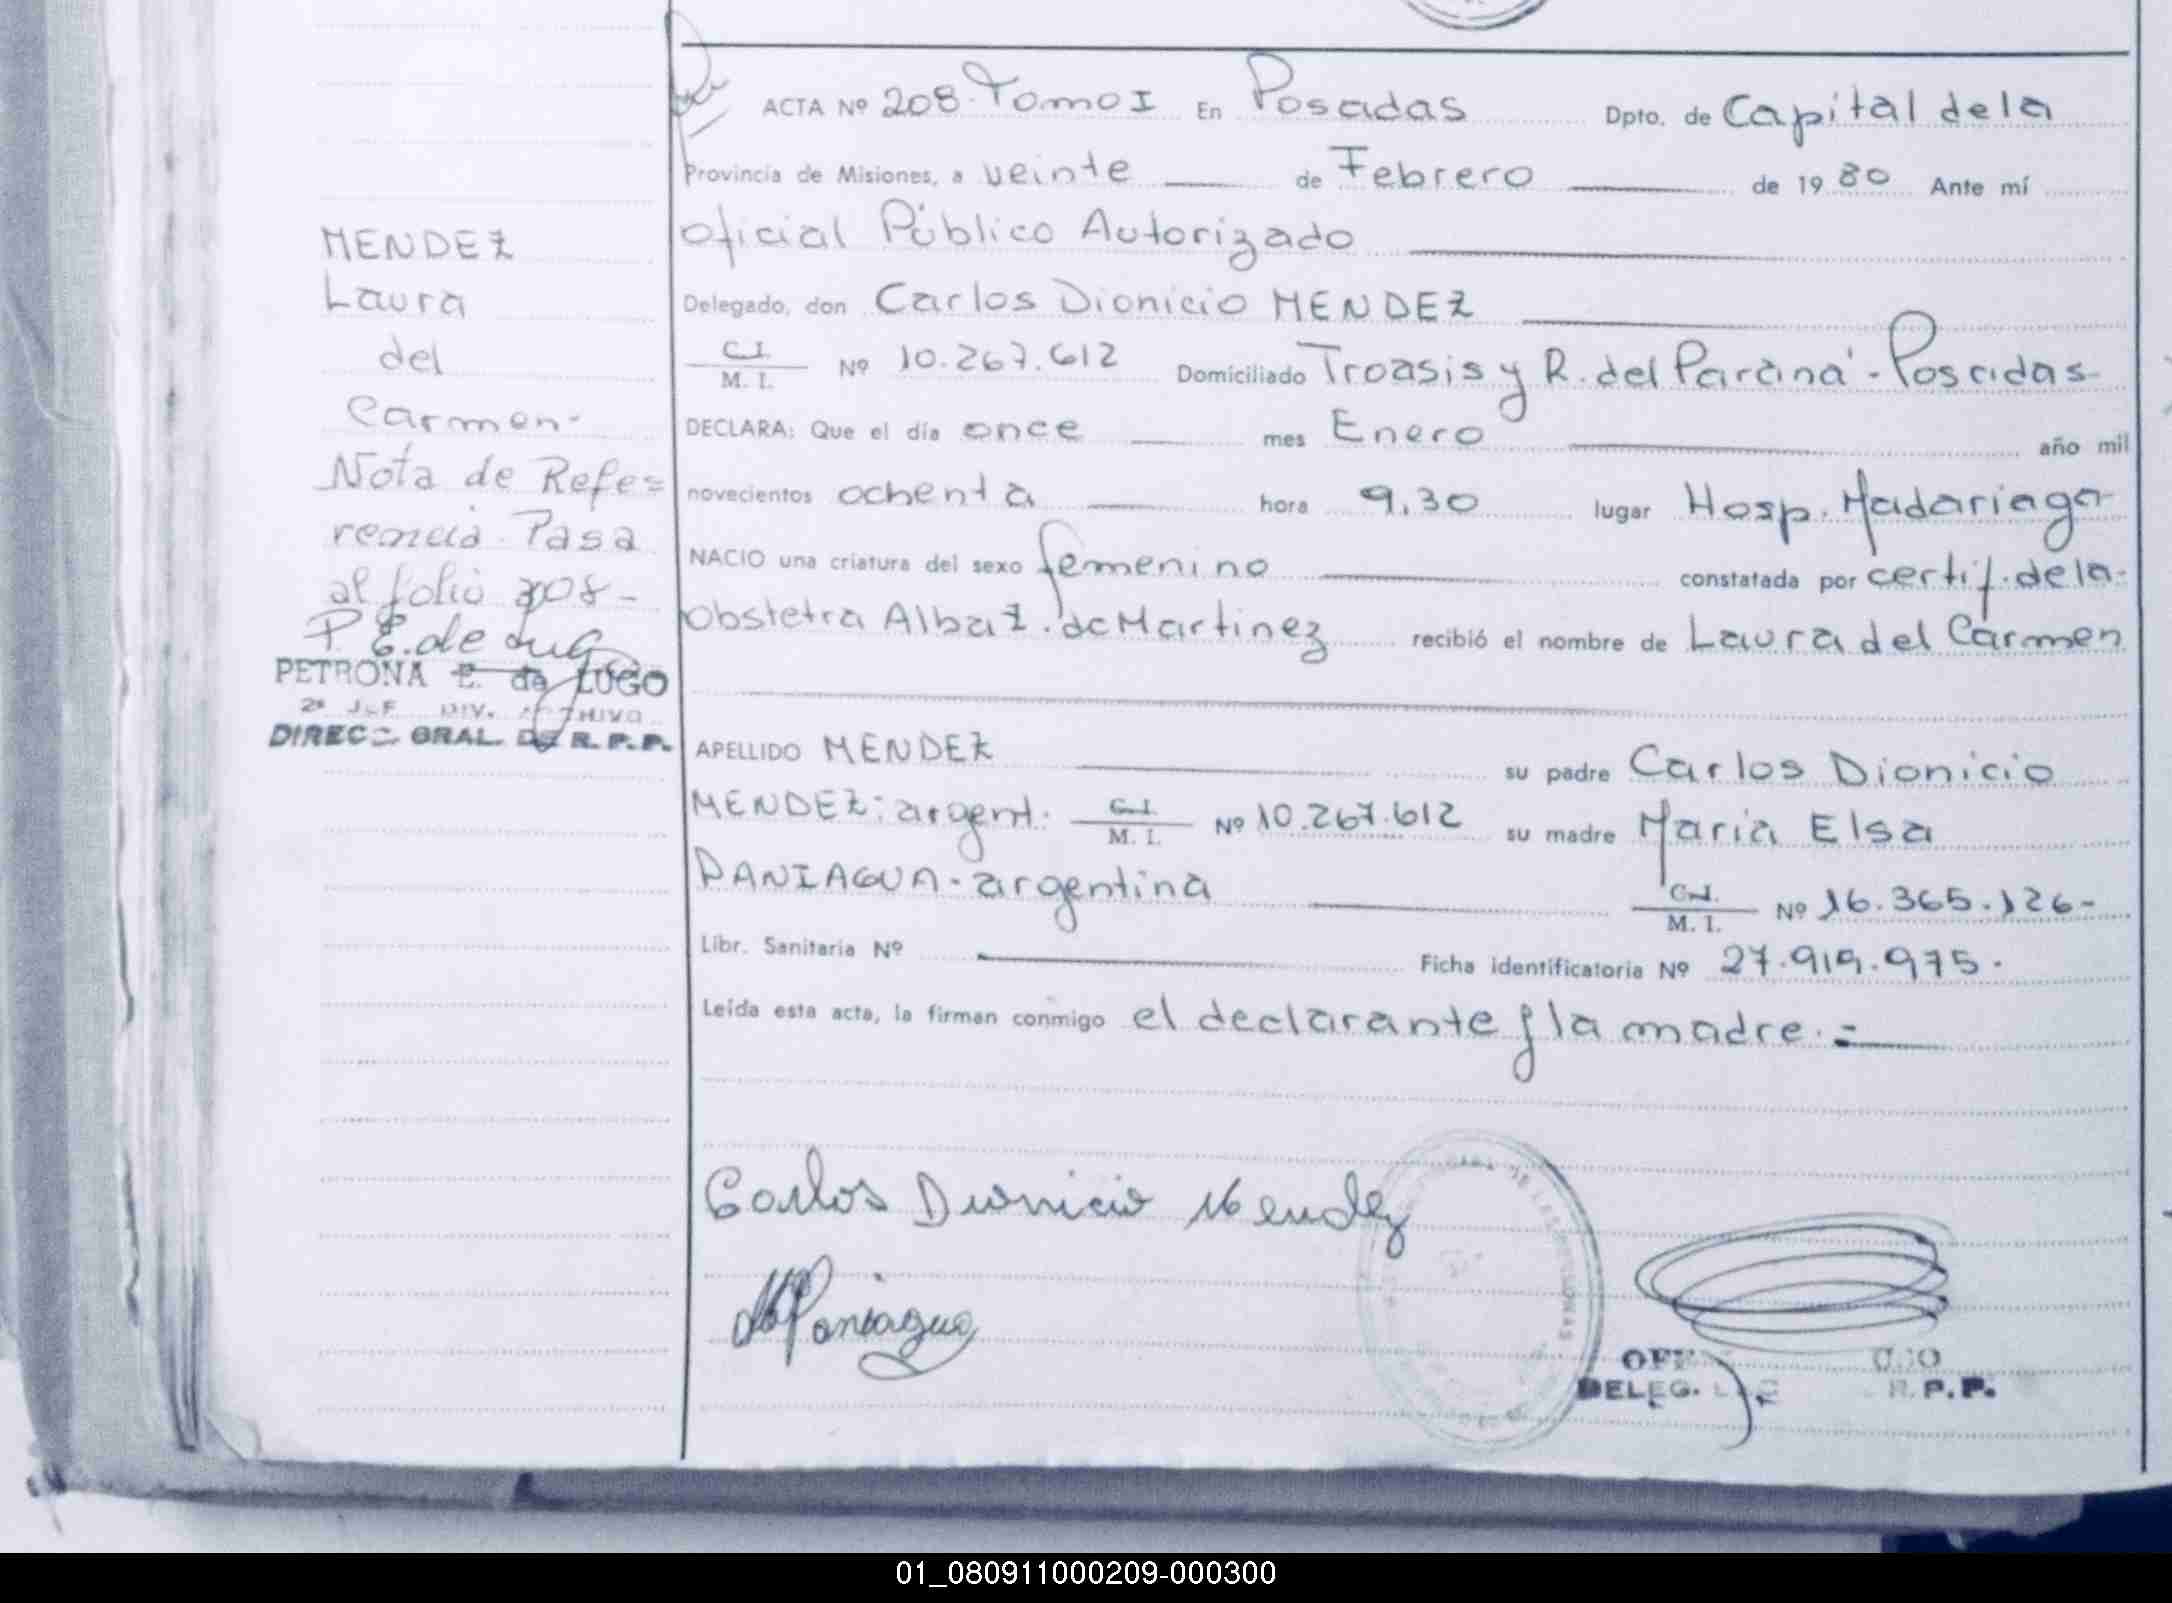 ACTA Nº 208. Tomo I En Posadas Dpto. de Capital de la
Provincia de Misiones, a veinte de Febrero de 1980 Ante mí
Oficial Público Autorizado
Delegado, don Carlos Dionicio MENDEZ
C.I. M. I. Nº 10.267.612 Domiciliado Troasis y R. del Paraná - Posadas
DECLARA: Que el día once mes Enero año mil
novecientos ochenta hora 9,30 lugar Hosp. Madariaga
NACIO una criatura del sexo femenino constatada por certif. de la
Obstetra Alba Z. de Martinez recibió el nombre de Laura del Carmen
APELLIDO MENDEZ su padre Carlos Dionicio
MENDEZ: argent. C.I. M. I. Nº 10.267.612 su madre Maria Elsa
PANIAGUA - argentina C.I. M. I. Nº 16.365.126-
Libr. Sanitaria Nº Ficha identificatoria Nº 27.919.975.
Leída esta acta, la firman conmigo el declarante y la madre.=
Carlos Dionicio Mendez
Paniagua
DELEG. R.P.P.
MENDEZ
Laura
del
Carmen-
Nota de Refe=
rencia Pasa
al folio 308-
P. E. de Lugo
PETRONA E. de LUGO
2º JEF DIV. ARCHIVO
DIREC GRAL. DE R.P.P.
01_080911000209-000300